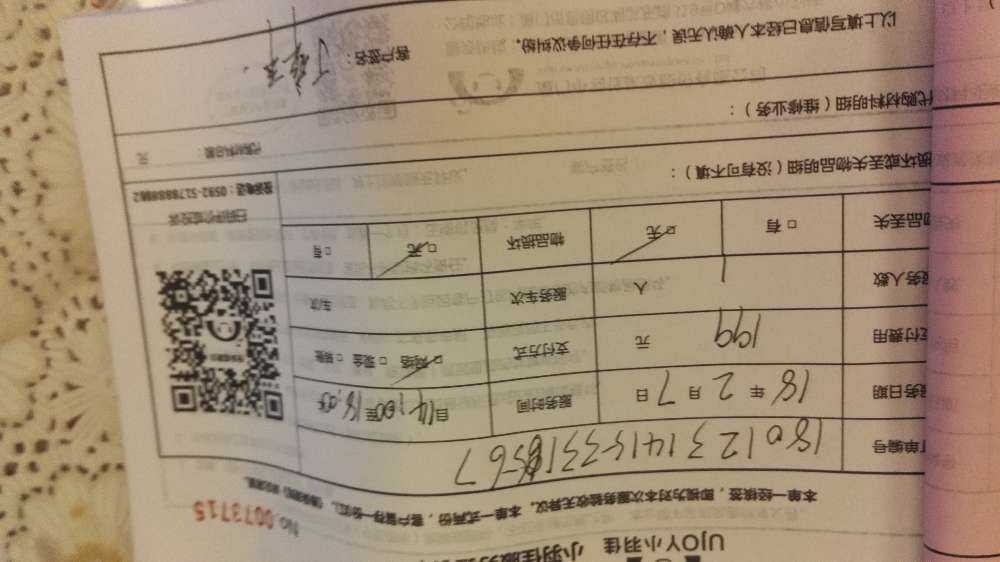 UJOY 小羽佳 小羽佳服务
No.0073715
本单一经核签，即视为对本次服务验收无异议。本单一式两份，客户留存一份
单编号
务日期 18 年 2 月 7 日 服务时间 自14:00至18:05
付费用 199 元 支付方式 □网络 □现金 □转账
务人数 1 人 服务车次 车/次
品丢失 □有 □无 物品损坏 □无 □有
扫码评价或投诉
投诉电话：0592-5178888转2
损坏或丢失物品明细（没有可不填）：
代购材料明细（维修业务）：
代购材料总额： 元
以上填写信息已经本人确认无误，不存在任何争议纠纷。
客户签名：